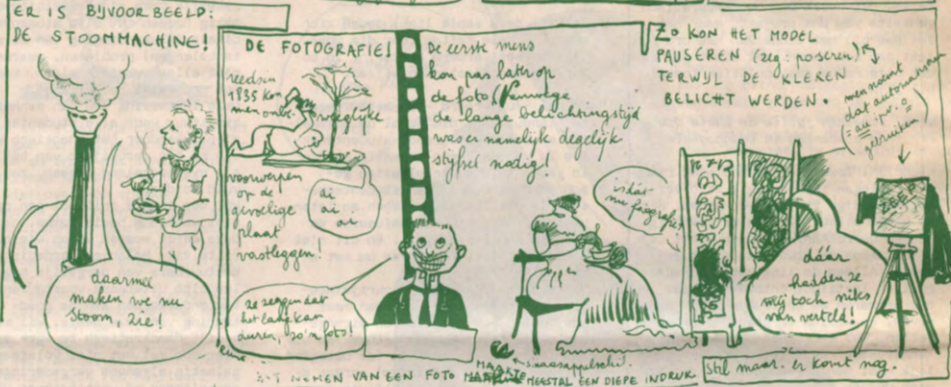 ER IS BIJVOORBEELD:
DE STOOMMACHINE!
daarmee
maken we nu
stoom, zie!
DE FOTOGRAFIE!
reeds in
1835 kon
men onbe-
weeglijke
voorwerpen
op de
gevoelige
plaat
vastleggen!
ai
ai
ai
ze zeggen dat
het lang kan
duren, zo'n foto!
De eerste mens
kon pas later op
de foto!
de lange belichtingstijd
was er namelijk degelijk
stijfsel nodig!
is dát
nu
ZO KON HET MODEL
PAUSEREN (zeg: poseren)
TERWIJL DE KLEREN
BELICHT WERDEN.
men neemt
dat
gebruiken
dáár
hadden ze
mij toch niks
van verteld!
HET NEMEN VAN EEN FOTO MAAKTE MEESTAL EEN DIEPE INDRUK
stil maar. er komt nog.